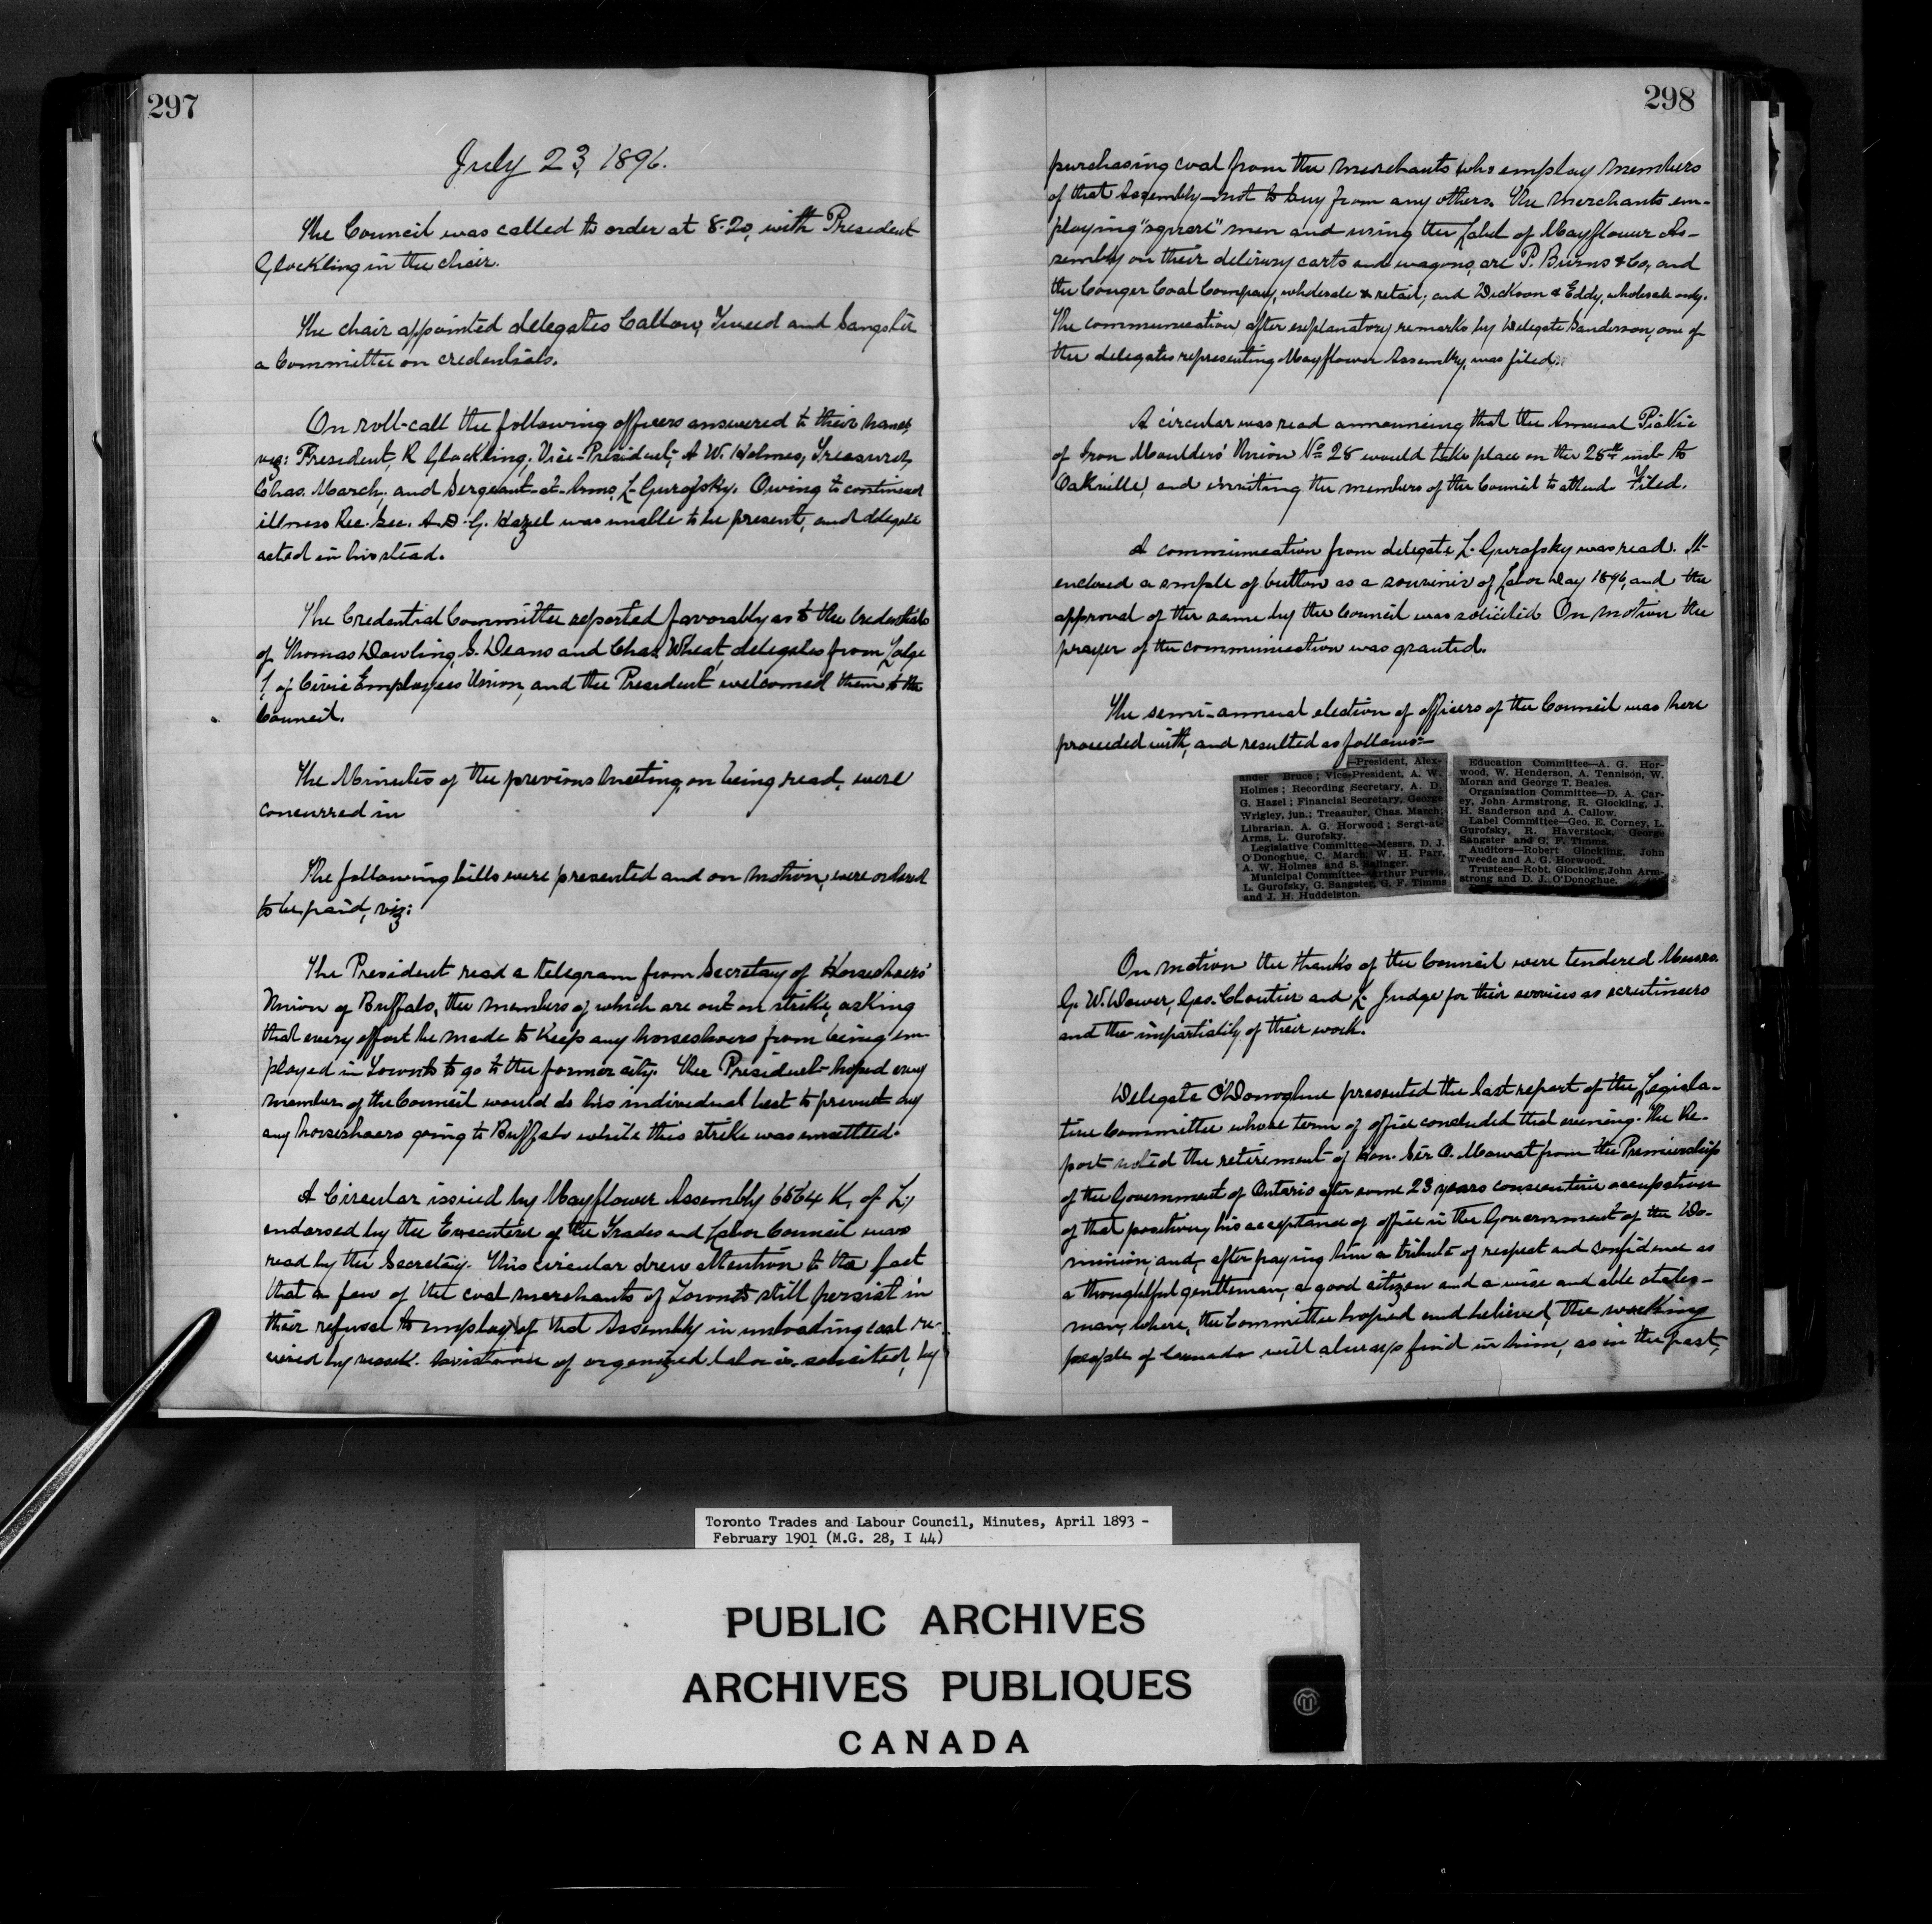 297
July 23, 1896.
The Council was called to order at 8.20, with President
Glockling in the chair.
The chair appointed delegates Callow, Tweed and Sangster
a Committee on credentials.
On roll-call the following officers answered to their names
viz: President, R Glockling; Vice-President, A W. Holmes, Treasurer,
Chas. March; and Sergeant-at-Arms, L. Gurofsky. Owing to continued
illness Rec. Sec. A. D. G. Hazel was unable to be present, and delegate
acted in his stead.
The Credential Committee reported favorably as to the credentials
of Thomas Dowling, G. Deans and Chas. Wheat, delegates from Lodge
1, of Civic Employees Union, and the President welcomed them to the
Council.
The Minutes of the previous meeting, on being read, were
concurred in
The following bills were presented and on motion, were ordered
to be paid, viz:
The President read a telegram from Secretary of Horseshoers'
Union of Buffalo, the members of which are out on strike, asking
that every effort be made to keep any horseshoers from being em-
ployed in Toronto to go to the former city. The President hoped every
member of the Council would do his individual best to prevent any
any horseshoers going to Buffalo while this strike was unsettled.
A Circular issued by Mayflower Assembly 6564 K. of L.,
endorsed by the Executive of the Trades and Labor Council was
read by the Secretary. This circular drew attention to the fact
that a few of the coal merchants of Toronto still persist in
their refusal to employ of that Assembly in unloading coal re-
ceived by vessel. Assistance of organized labor is solicited, by
298
purchasing coal from the merchants who employ members
of that Assembly—not to buy from any others. The merchants em-
ploying "square" men and using the Label of Mayflower As-
sembly on their delivery carts and wagons, are P. Burns & Co, and
the Conger Coal Company, wholesale & retail; and Dickson & Eddy, wholesale only.
The communication after explanatory remarks by Delegate Sanderson, one of
the delegates representing Mayflower Assembly, was filed.
A circular was read announcing that the Annual Picnic
of Iron Moulders' Union No 28 would take place on the 28th inst to
Oakville, and inviting the members of the Council to attend. Filed.
A communication from delegate L. Gurofsky was read. It
enclosed a smple of button as a souvenir of Labor Day 1896, and the
approval of the same by the Council was solicited. On motion the
prayer of the communication was granted.
The semi-annual election of officers of the Council was here
proceeded with, and resulted as follows:—
—President, Alex-
ander Bruce; Vice-President, A. W.
Holmes; Recording Secretary, A. D.
G. Hazel; Financial Secretary, George
Wrigley, jun.; Treasurer, Chas. March;
Librarian, A. G. Horwood; Sergt-at-
Arms, L. Gurofsky.
Legislative Committee—Messrs. D. J.
O'Donoghue, C. March, W. H. Parr,
A. W. Holmes and S.
Municipal Committee—Arthur Purvis,
L. Gurofsky, G. Sangster, G. F. Timms
and J. H. Huddelston.
Education Committee—A. G. Hor-
wood, W. Henderson, A. Tennison, W.
Moran and George T. Beales.
Organization Committee—D. A. Car-
ey, John Armstrong, R. Glockling, J.
H. Sanderson and A. Callow.
Label Committee—Geo. E. Corney, L.
Gurofsky, R. Haverstock, George
Sangster and G. F. Timms.
Auditors—Robert Glockling, John
Tweede and A. G. Horwood.
Trustees—Robt. Glockling, John Arm-
strong and D. J. O'Donoghue.
On motion the thanks of the Council were tendered Messrs.
G. W. Dower, Geo. Cloutier and L. Judge for their services as scrutineers
and the impartiality of their work.
Delegate O'Donoghue presented the last report of the Legisla-
tive Committee whose term of office concluded that evening. The Re-
port noted the retirement of Hon. Sir O. Mowat from the Premiership
of the Government of Ontario after some 23 years consecutive occupation
of that position, his acceptance of office in the Government of the Do-
minion, and, after paying him a tribute of respect and confidence as
a thoughtful gentleman, a good citizen and a wise and able states-
man, where, the Committee hoped and believed, the working
people of Canada will always find in him, as in the past,
Toronto Trades and Labour Council, Minutes, April 1893 -
February 1901 (M.G. 28, I 44)
PUBLIC ARCHIVES
ARCHIVES PUBLIQUES
CANADA